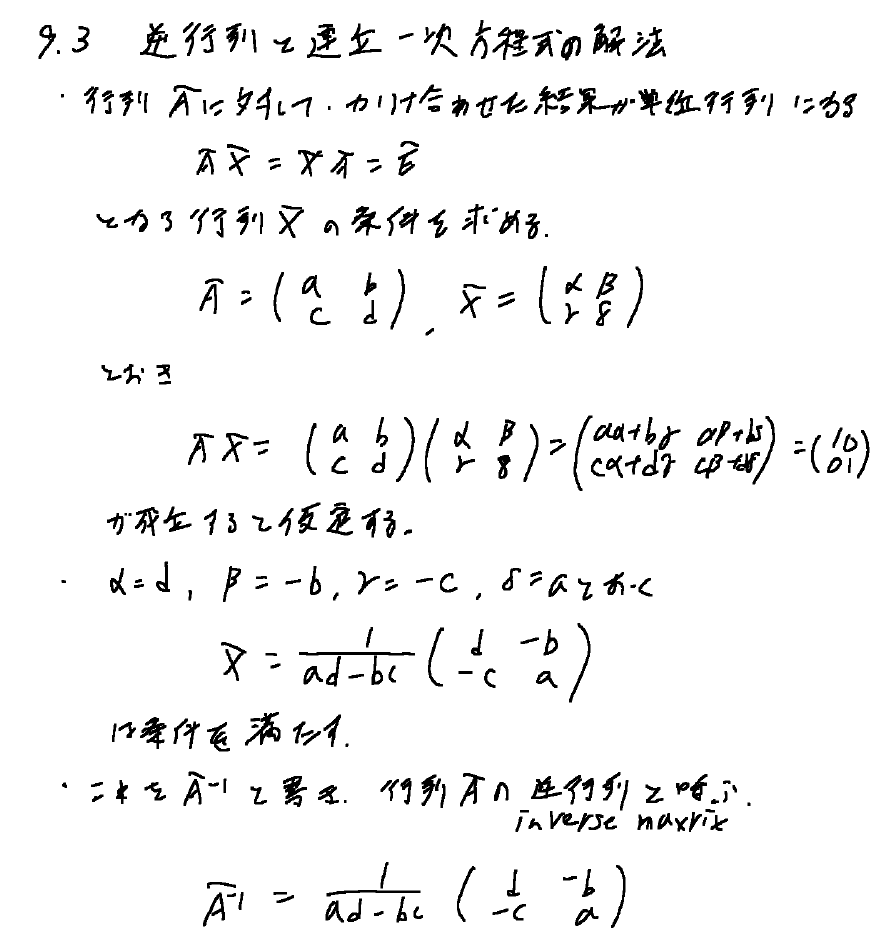 9.3 逆行列と連立一次方程式の解法
・行列 Āに対して、かけ合わせた結果が単位行列になる
ĀX̄ = X̄Ā = Ē
となる行列X̄の条件を求める.
Ā = (a b c d), X̄ = (α β γ δ)
とおき
ĀX̄ = (a b c d)(α β γ δ) = (aα+bγ aβ+bδ cα+dγ cβ+dδ) = (1 0 0 1)
が成立すると仮定する。
・ α=d, β=-b, γ=-c, δ=aとおく
X̄ = 1/(ad-bc) (d -b -c a)
は条件を満たす.
・これを Ā⁻¹ と書き、行列Āの逆行列と呼ぶ.
inverse maxrix
Ā⁻¹ = 1/(ad-bc) (d -b -c a)